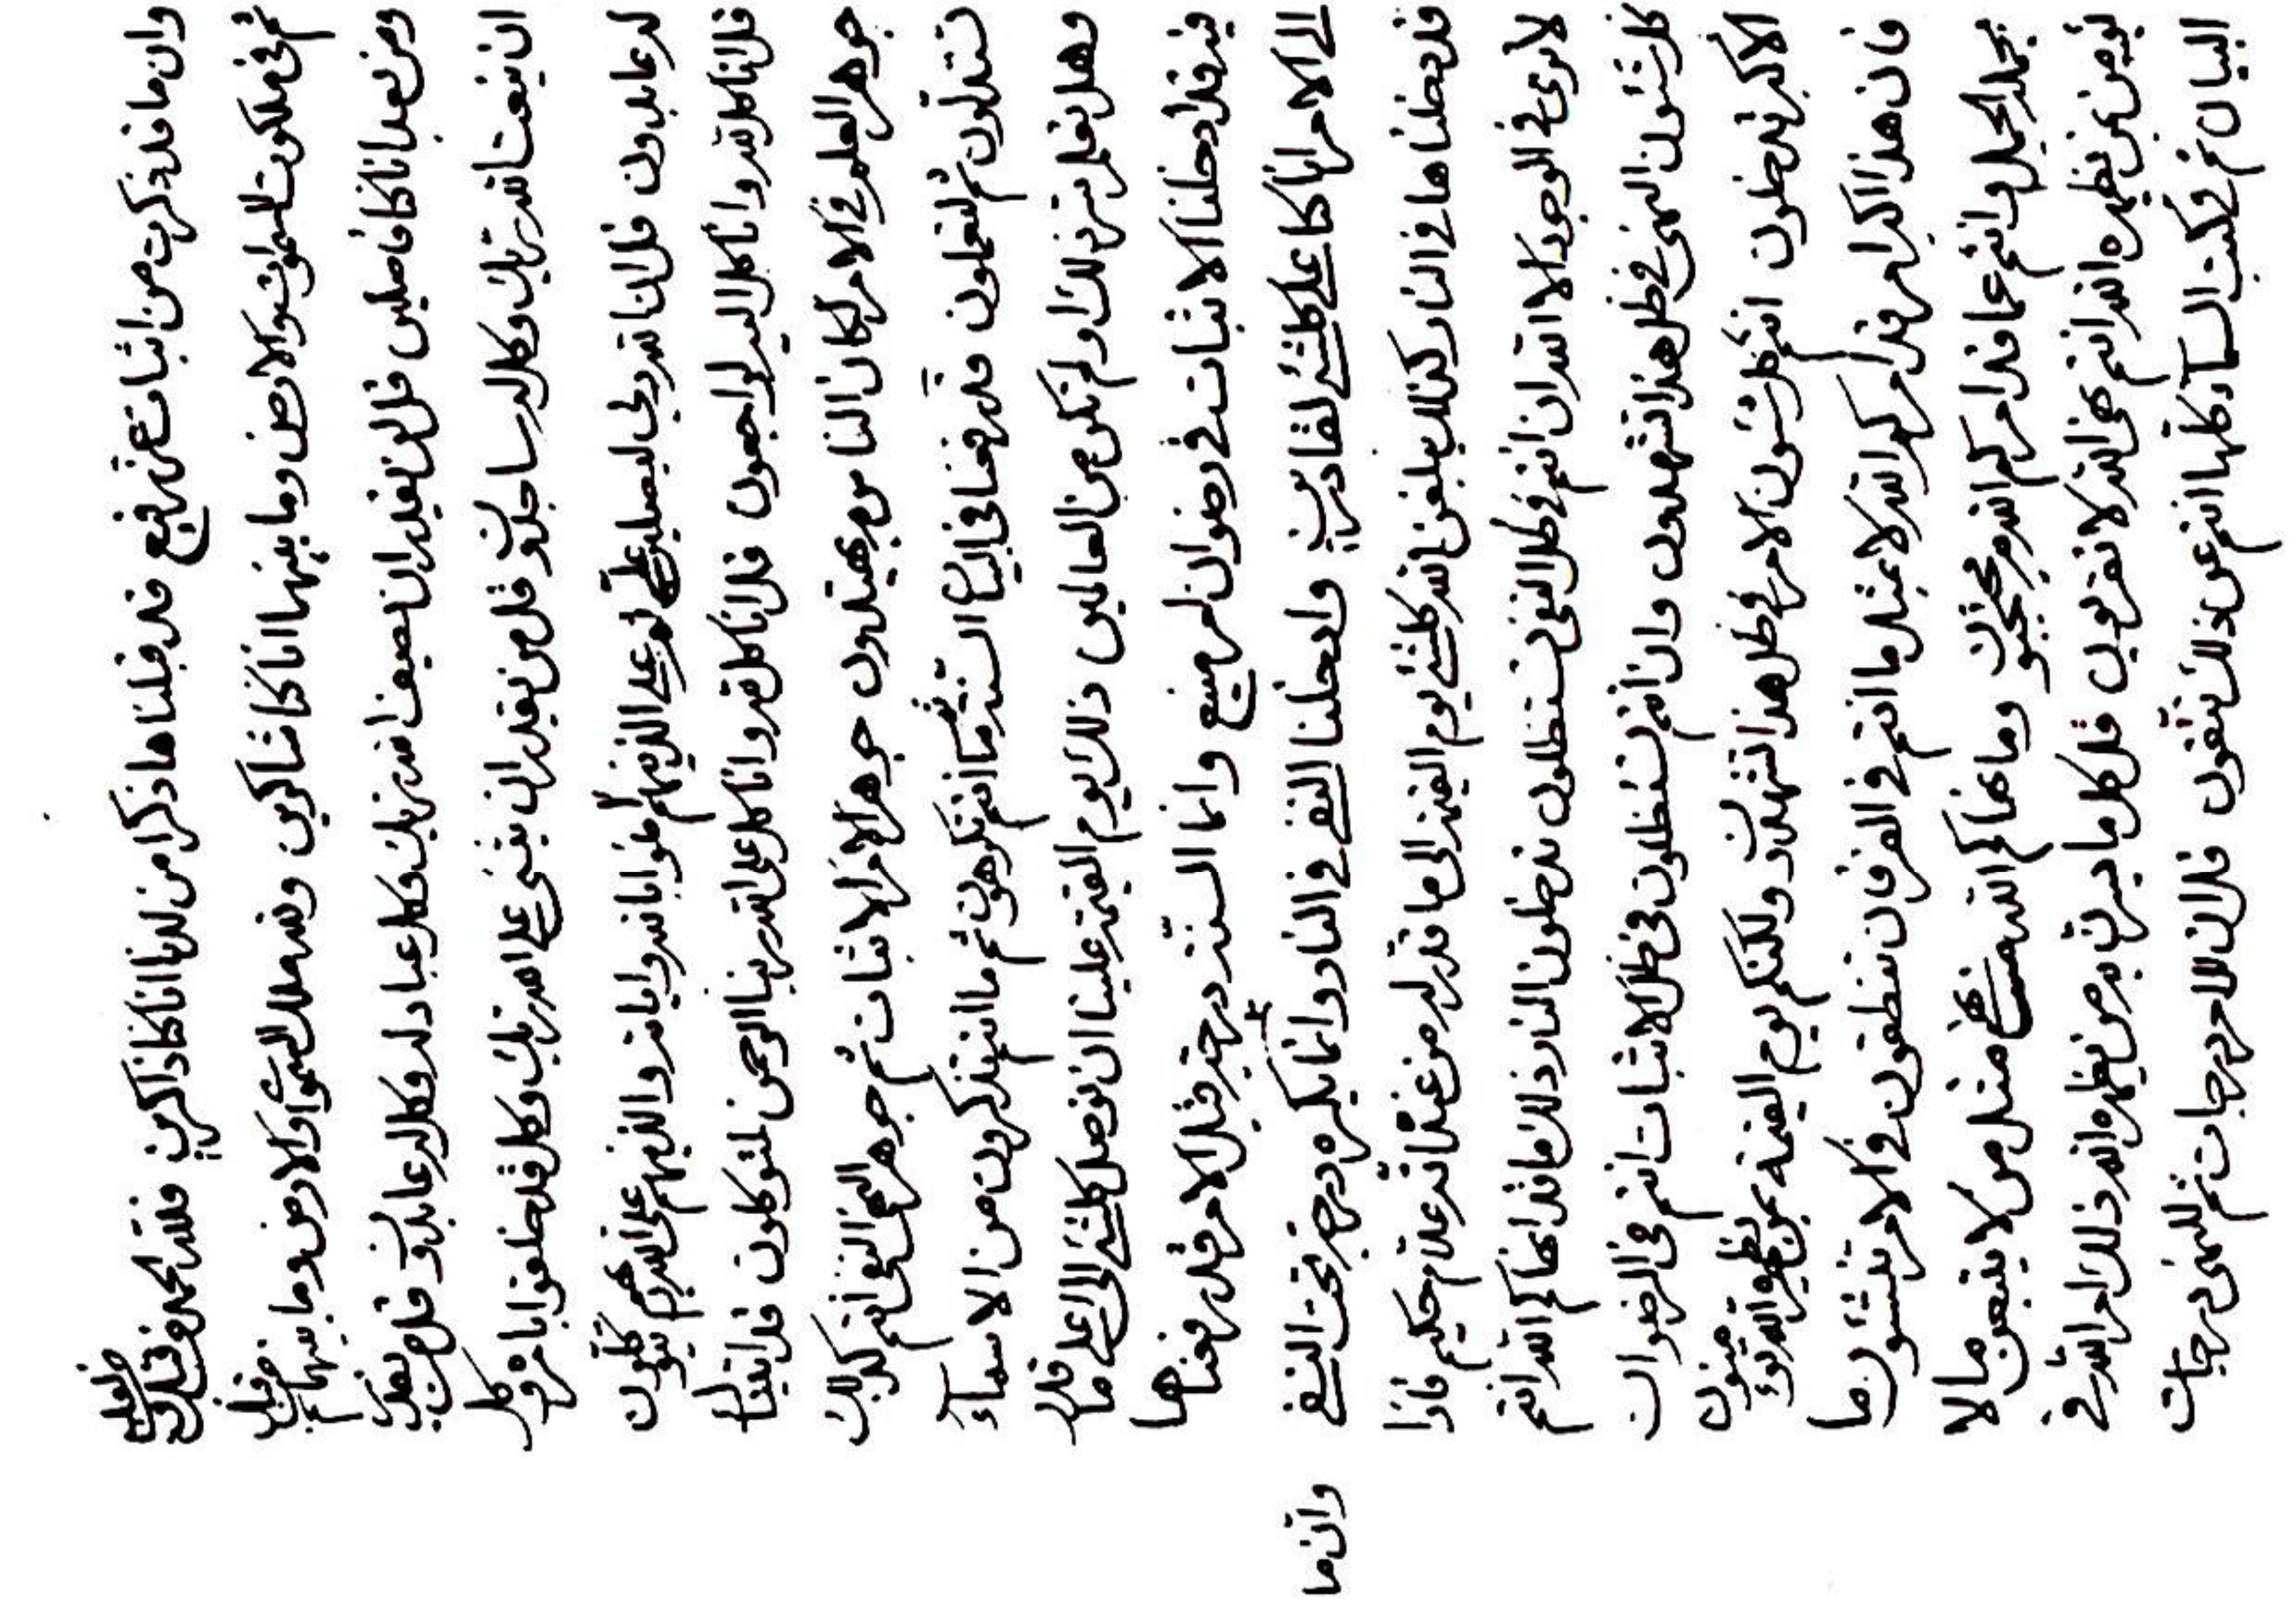 وان ما قد ذكرت من اثبات عز رفيع قد قبلناها ذكرا من لدنا انا كنا ذاكرين فلله الحمد
ثم في ملكوت السموات والارض وما بينهما انا كنا شاكرين ولله ملك السموات والارض وما بينهما من قبل
ومن بعد انا كنا فاضلين قل لن يقدر ان يصف الله ربك وكل عباد له وكل له عابدون قل من يقدر
ان ينعت الله ربك وكل له ساجدون قل من يقدر ان يثنى على الله ربك وكل قد خلقوا بامره وكل
له عابدون قل ان الله ربي ليصلين على الذينهم امنوا بالله واياته والذينهم على ربهم يتوكلون
قل انا كل لله وانا كل اليه لراجعون قل انا كل لله وانا كل على الله ربنا الرحمن لمتوكلون قد اتينا
جوهر العلم في الامر لكان الناس به يهتدون جوهر الامر الاثبات ثم جوهر النهي النفي انتم كذلك
تستدلون ثم لتعملون قد رفعنا في البيان السنة ما انتم تكرهون ثم ما انتم تذكرون من الاسماء
وهل نعلم ذلك او لم تكن من العالمين ذلك يوم القيمة علينا ان نوصل كلشئ الى اعلى ما قدر
فيه قد ادخلنا الاثبات في رضوان منيع وانما السنة درجة قبل الامر قد رفعناها
الى الامر انا كنا على كلشئ لقادرين وادخلنا النفي في النار وانما يكره درجة تحت النفي
وان ما
قد جعلناها في النار كذلك يبلغن الله كلشئ يوم القيمة الى ما قدر له من عنده انه علام حكيم فاذا
لا نرى في الوجود الا الله ان انتم في ظل النفي تستظلون تدخلون النار ذلك ما قد انهاكم الله انتم
كل شئون النهي في ظل هذا تشهدون وان انتم تستظلون في ظل الاثبات انتم في الرضوان
الاكبر تدخلون انتم كل شئون الامر في ظل هذا لتشهدون ولكنكم يوم القيمة بمن يظهره الله
فان هذا اكبر امر قد امركم الله لا بمثل ما انتم في الفرقان تنطقون في الامر ما
وانتم عما قد امركم الله محتجبون وما نهاكم الله من لا يتبعن ما لا
يؤمن بمن يظهره الله انتم نهى الله لا تقربون قل كل ما يرتد من يظهره الله ذلك امر الله في
البيان ثم في كتب السماء كلها انتم عن ذلك تتقون قل ان للامر درجات ثم للنهي درجات